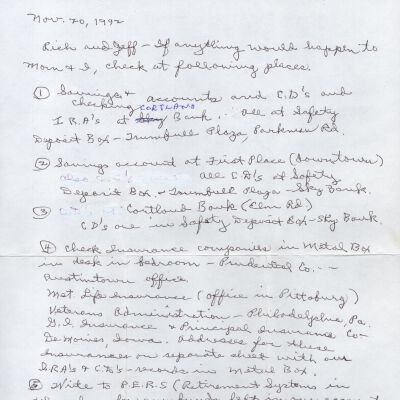 Nov. 20, 1992
Rich and Jeff - If anything would happen to
Mom & I, check at following places.
① Savings & accounts and C.D's and
checking CORTLAND
I.R.A's at Sky Bank... all at Safety
Deposit Box - Trumbull Plaza, Parkman Rd.
② Savings account at First Place (Downtown)
all C.D's at Safety
Deposit Box - Trumbull Plaza - Sky Bank.
③ Cortland Bank (Elm Rd)
C.D's are in Safety Deposit Box - Sky Bank.
④ Check Insurance companies in Metal Box
in desk in bedroom - Prudential Co. --
Austintown office.
Met Life Insurance (office in Pittsburg)
Veterans Administration - Philadelphia, Pa.
G.I. Insurance & Principal Insurance Co-
Des Moines, Iowa. Addresses for these
Insurances on separate sheet with our
I.RA's & C.D's - records in Metal Box.
⑤ Write to P.E.R.S (Retirement Systems in